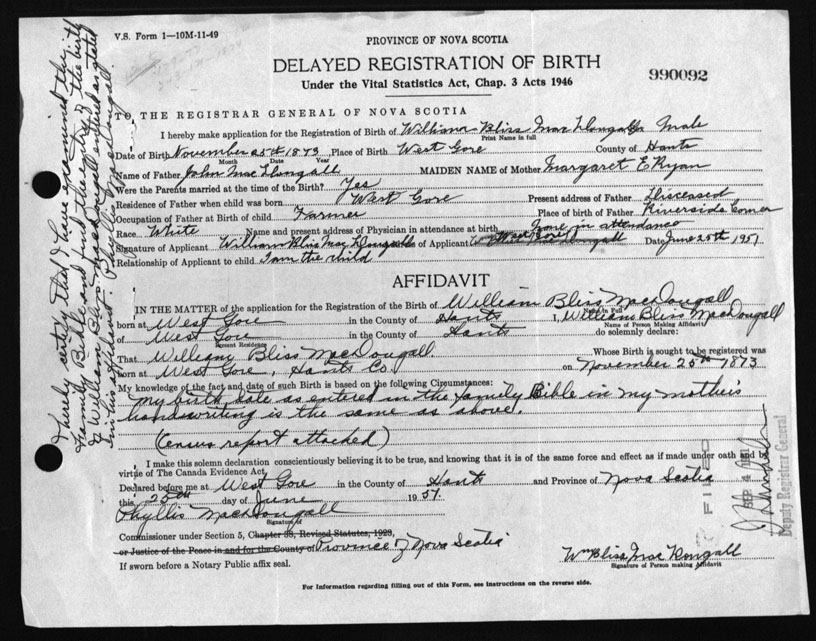 V.S. Form 1—10M-11-49
PROVINCE OF NOVA SCOTIA
DELAYED REGISTRATION OF BIRTH
Under the Vital Statistics Act, Chap. 3 Acts 1946
990092
TO THE REGISTRAR GENERAL OF NOVA SCOTIA
I hereby make application for the Registration of Birth of William Bliss MacDougall Male
Print Name in full
Date of Birth November 25th 1873 Place of Birth West Gore County of Hants
Month Date Year
Name of Father John MacDougall MAIDEN NAME of Mother Margaret E Ryan
Were the Parents married at the time of the Birth? Yes
Residence of Father when child was born West Gore Present address of Father Disceased
Occupation of Father at Birth of child Farmer Place of birth of Father Riverside Corner
Race White Name and present address of Physician in attendance at birth None in attendance
Signature of Applicant William Bliss MacDougall of Applicant West Gore Date June 25th 1951
Relationship of Applicant to child I am the child
AFFIDAVIT
IN THE MATTER of the application for the Registration of Birth of William Bliss MacDougall
Name in Full
born at West Gore in the County of Hants I, William Bliss MacDougall
Name of Person Making Affidavit
of West Gore in the County of Hants do solemnly declare:
Present Residence
That William Bliss MacDougall. Whose Birth is sought to be registered was
born at West Gore, Hants Co. on November 25th 1873
My knowledge of the fact and date of such Birth is based on the following Circumstances:
my birth date as entered in the family Bible in my mother's
handwriting is the same as above.
(Census report attached)
I make this solemn declaration conscientiously believing it to be true, and knowing that it is of the same force and effect as if made under oath and by
virtue of The Canada Evidence Act.
Declared before me at West Gore in the County of Hants and Province of Nova Scotia
this 25th day of June 1951.
Phyllis MacDougall
Signature of
Commissioner under Section 5, Chapter 38, Revised Statutes, 1923,
or Justice of the Peace in and for the County of Province of Nova Scotia
If sworn before a Notary Public affix seal.
Wm Bliss MacDougall
Signature of Person making Affidavit
For Information regarding filling out of this Form, see instructions on the reverse side.
I hereby certify that I have examined this
Family Bible and find the date of the birth
of William Bliss MacDougall entered as stated
in his Affidavit Phyllis MacDougall
FILED
SEP 4
Deputy Registrar General